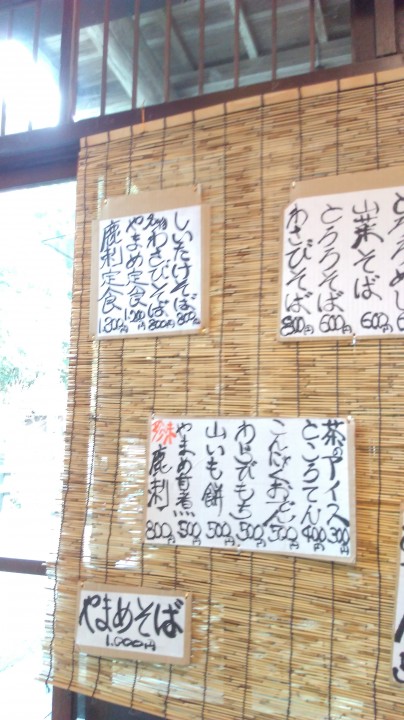 しいたけそば 800円
名物 わさびそば 800円
やまめ定食 1.200円
鹿刺定食 1.300円
とろろめし 6
山菜そば 600円
とろろそば 600円
わさびそば 800円
茶のアイス 300円
ところてん 400円
こんにゃくおでん 500円
わらびもち 500円
山いも餅 500円
やまめ甘煮 500円
珍味 鹿刺 800円
やまめそば
1.000円